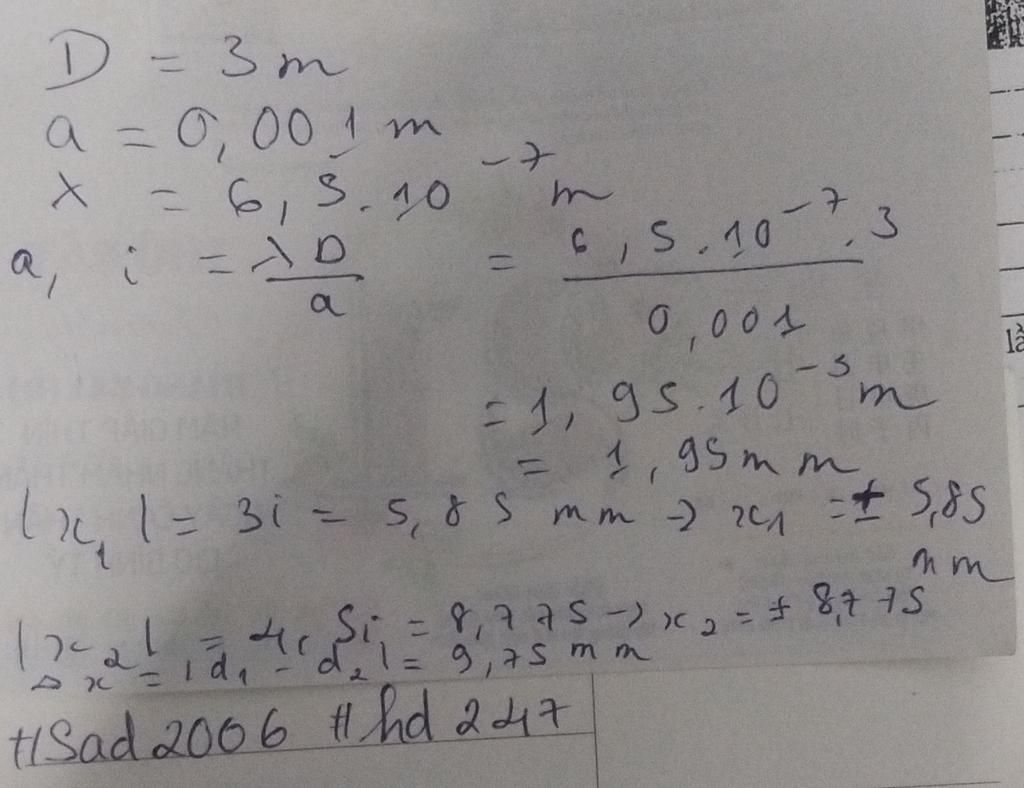 D = 3m
a = 0,001 m
λ = 6,5.10⁻⁷ m
a, i = λD/a = 6,5.10⁻⁷.3/0,001
= 1,95.10⁻³ m
= 1,95mm
|x₁| = 3i = 5,85 mm → x₁ = ± 5,85 mm
|x₂| = 4,5i = 8,775 → x₂ = ± 8,775
Δx = |d₁ - d₂| = 9,75 mm
#Sad2006 #hd247
là